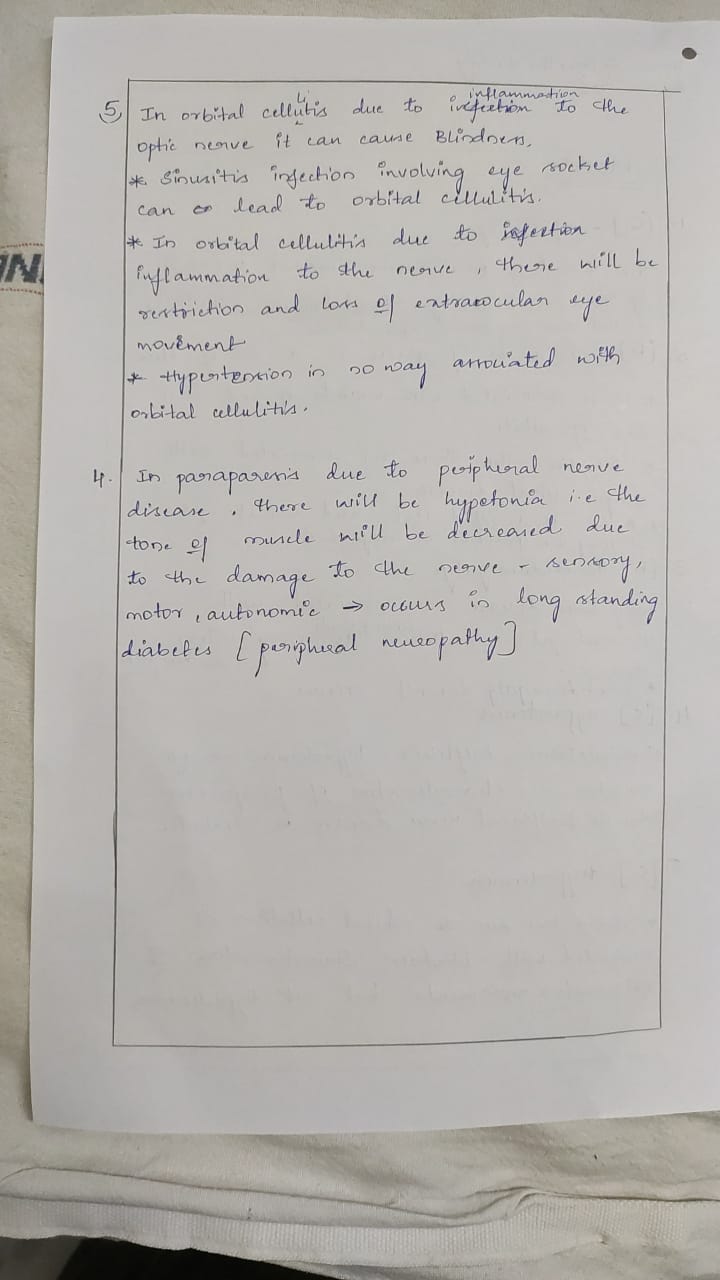 5) In orbital cellulitis due to infection inflammation to the
optic nerve it can cause Blindness.
* Sinusitis infection involving eye socket
can lead to orbital cellulitis.
* In orbital cellulitis due to infection
inflammation to the nerve, there will be
restriction and loss of extraocular eye
movement
* Hypertension is no way associated with
orbital cellulitis.
4. In paraparesis due to peripheral nerve
disease, there will be hypotonia i.e the
tone of muscle will be decreased due
to the damage to the nerve - sensory,
motor, autonomic → occurs in long standing
diabetes [peripheral neuropathy]